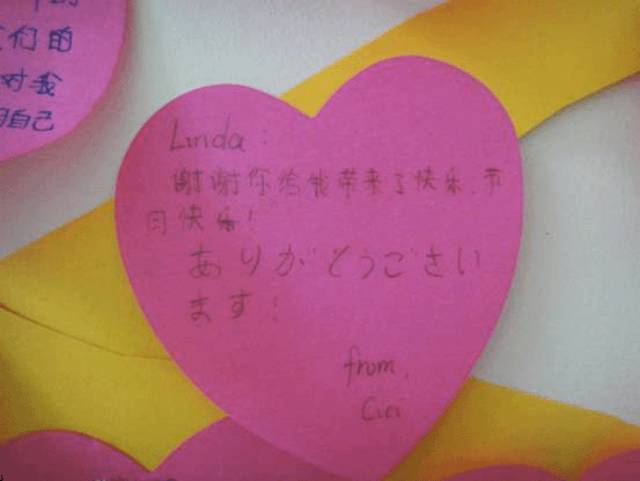 们的
对我
自己
Linda:
谢谢你给我带来了快乐,节
日快乐!
ありがとうござい
ます!
from,